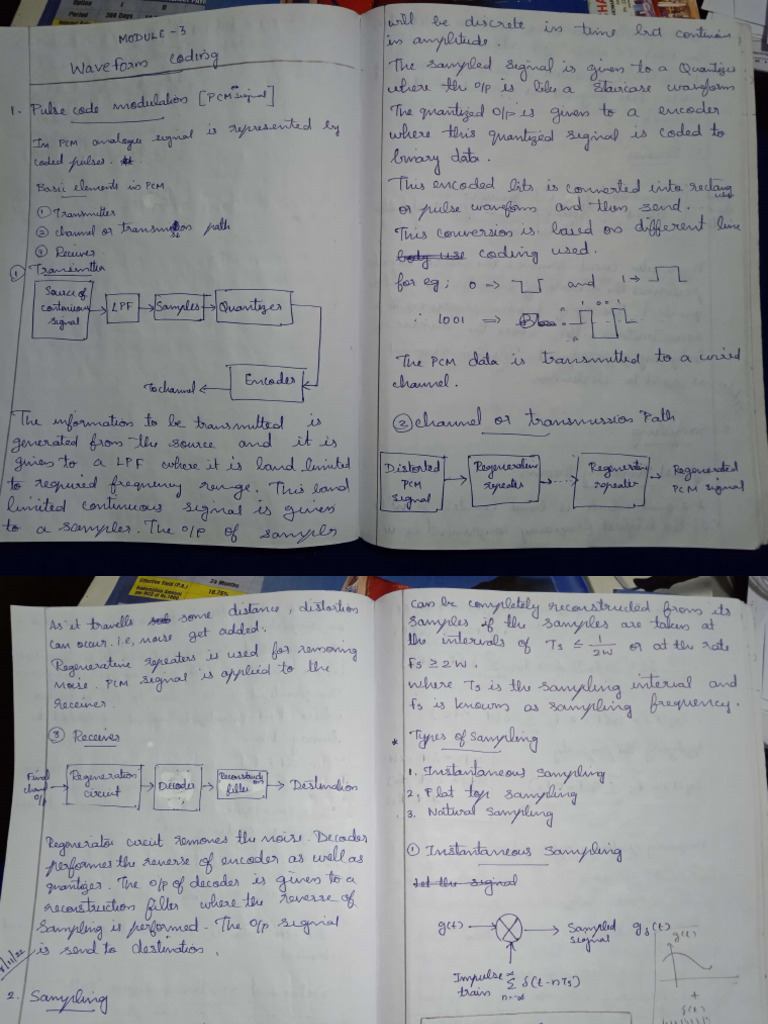 MODULE - 3
Waveform coding
1. Pulse code modulation [PCM signal]
In PCM analogue signal is represented by
coded pulses.
Basic elements in PCM
① Transmitter
② channel or transmission path
③ Receiver
① Transmitter
Source of
continuous
signal
LPF
Samples
Quantizer
Encoder
To channel
The information to be transmitted is
generated from the source and it is
given to a LPF where it is band limited
to required frequency range. This band
limited continuous signal is given
to a sampler. The o/p of sampler
will be discrete in time but continuous
in amplitude.
The sampled signal is given to a Quantizer
where the o/p is like a staircase waveform
The quantized o/p is given to a encoder
where this quantized signal is coded to
binary data.
This encoded bits is converted into rectang
or pulse waveform and then send.
This conversion is based on different line
coding used.
for eg: 0 → and 1 →
∴ 1001 ⇒ 1 0 0 1
The PCM data is transmitted to a wired
channel.
② channel or transmission Path
Distorted
PCM
Signal
Regenerative
repeater
Regenerative
repeater
Regenerated
PCM signal
Effective Yield (P.A.)
As it travells some distance, distortion
can occur. i.e, noise get added.
Regenerative repeaters is used for removing
noise. PCM signal is applied to the
receiver.
③ Receiver
Final
chan
o/p
Regeneration
circuit
Decoder
Reconstruction
filter
Destination
Regenerator circuit removes the noise. Decoder
performes the reverse of encoder as well as
quantizer. The o/p of decoder is given to a
reconstruction filter where the reverse of
sampling is performed. The o/p signal
is send to destination.
2. Sampling
can be completely reconstructed from its
samples if the samples are taken at
the intervals of Ts ≤ 1/2W or at the rate
Fs ≥ 2W.
where Ts is the sampling interval and
fs is knowns as sampling frequency.
* Types of sampling
1. Instantaneous sampling
2. Flat top sampling
3. Natural Sampling
① Instantaneous Sampling
Let the signal
g(t) → ⊗ → Sampled
signal gδ(t)
Impulse
train ∑ δ(t-nTs)
n=-∞
g(t)